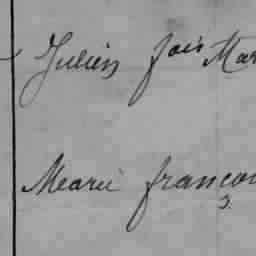 Julien fois Mar
Marie françoi